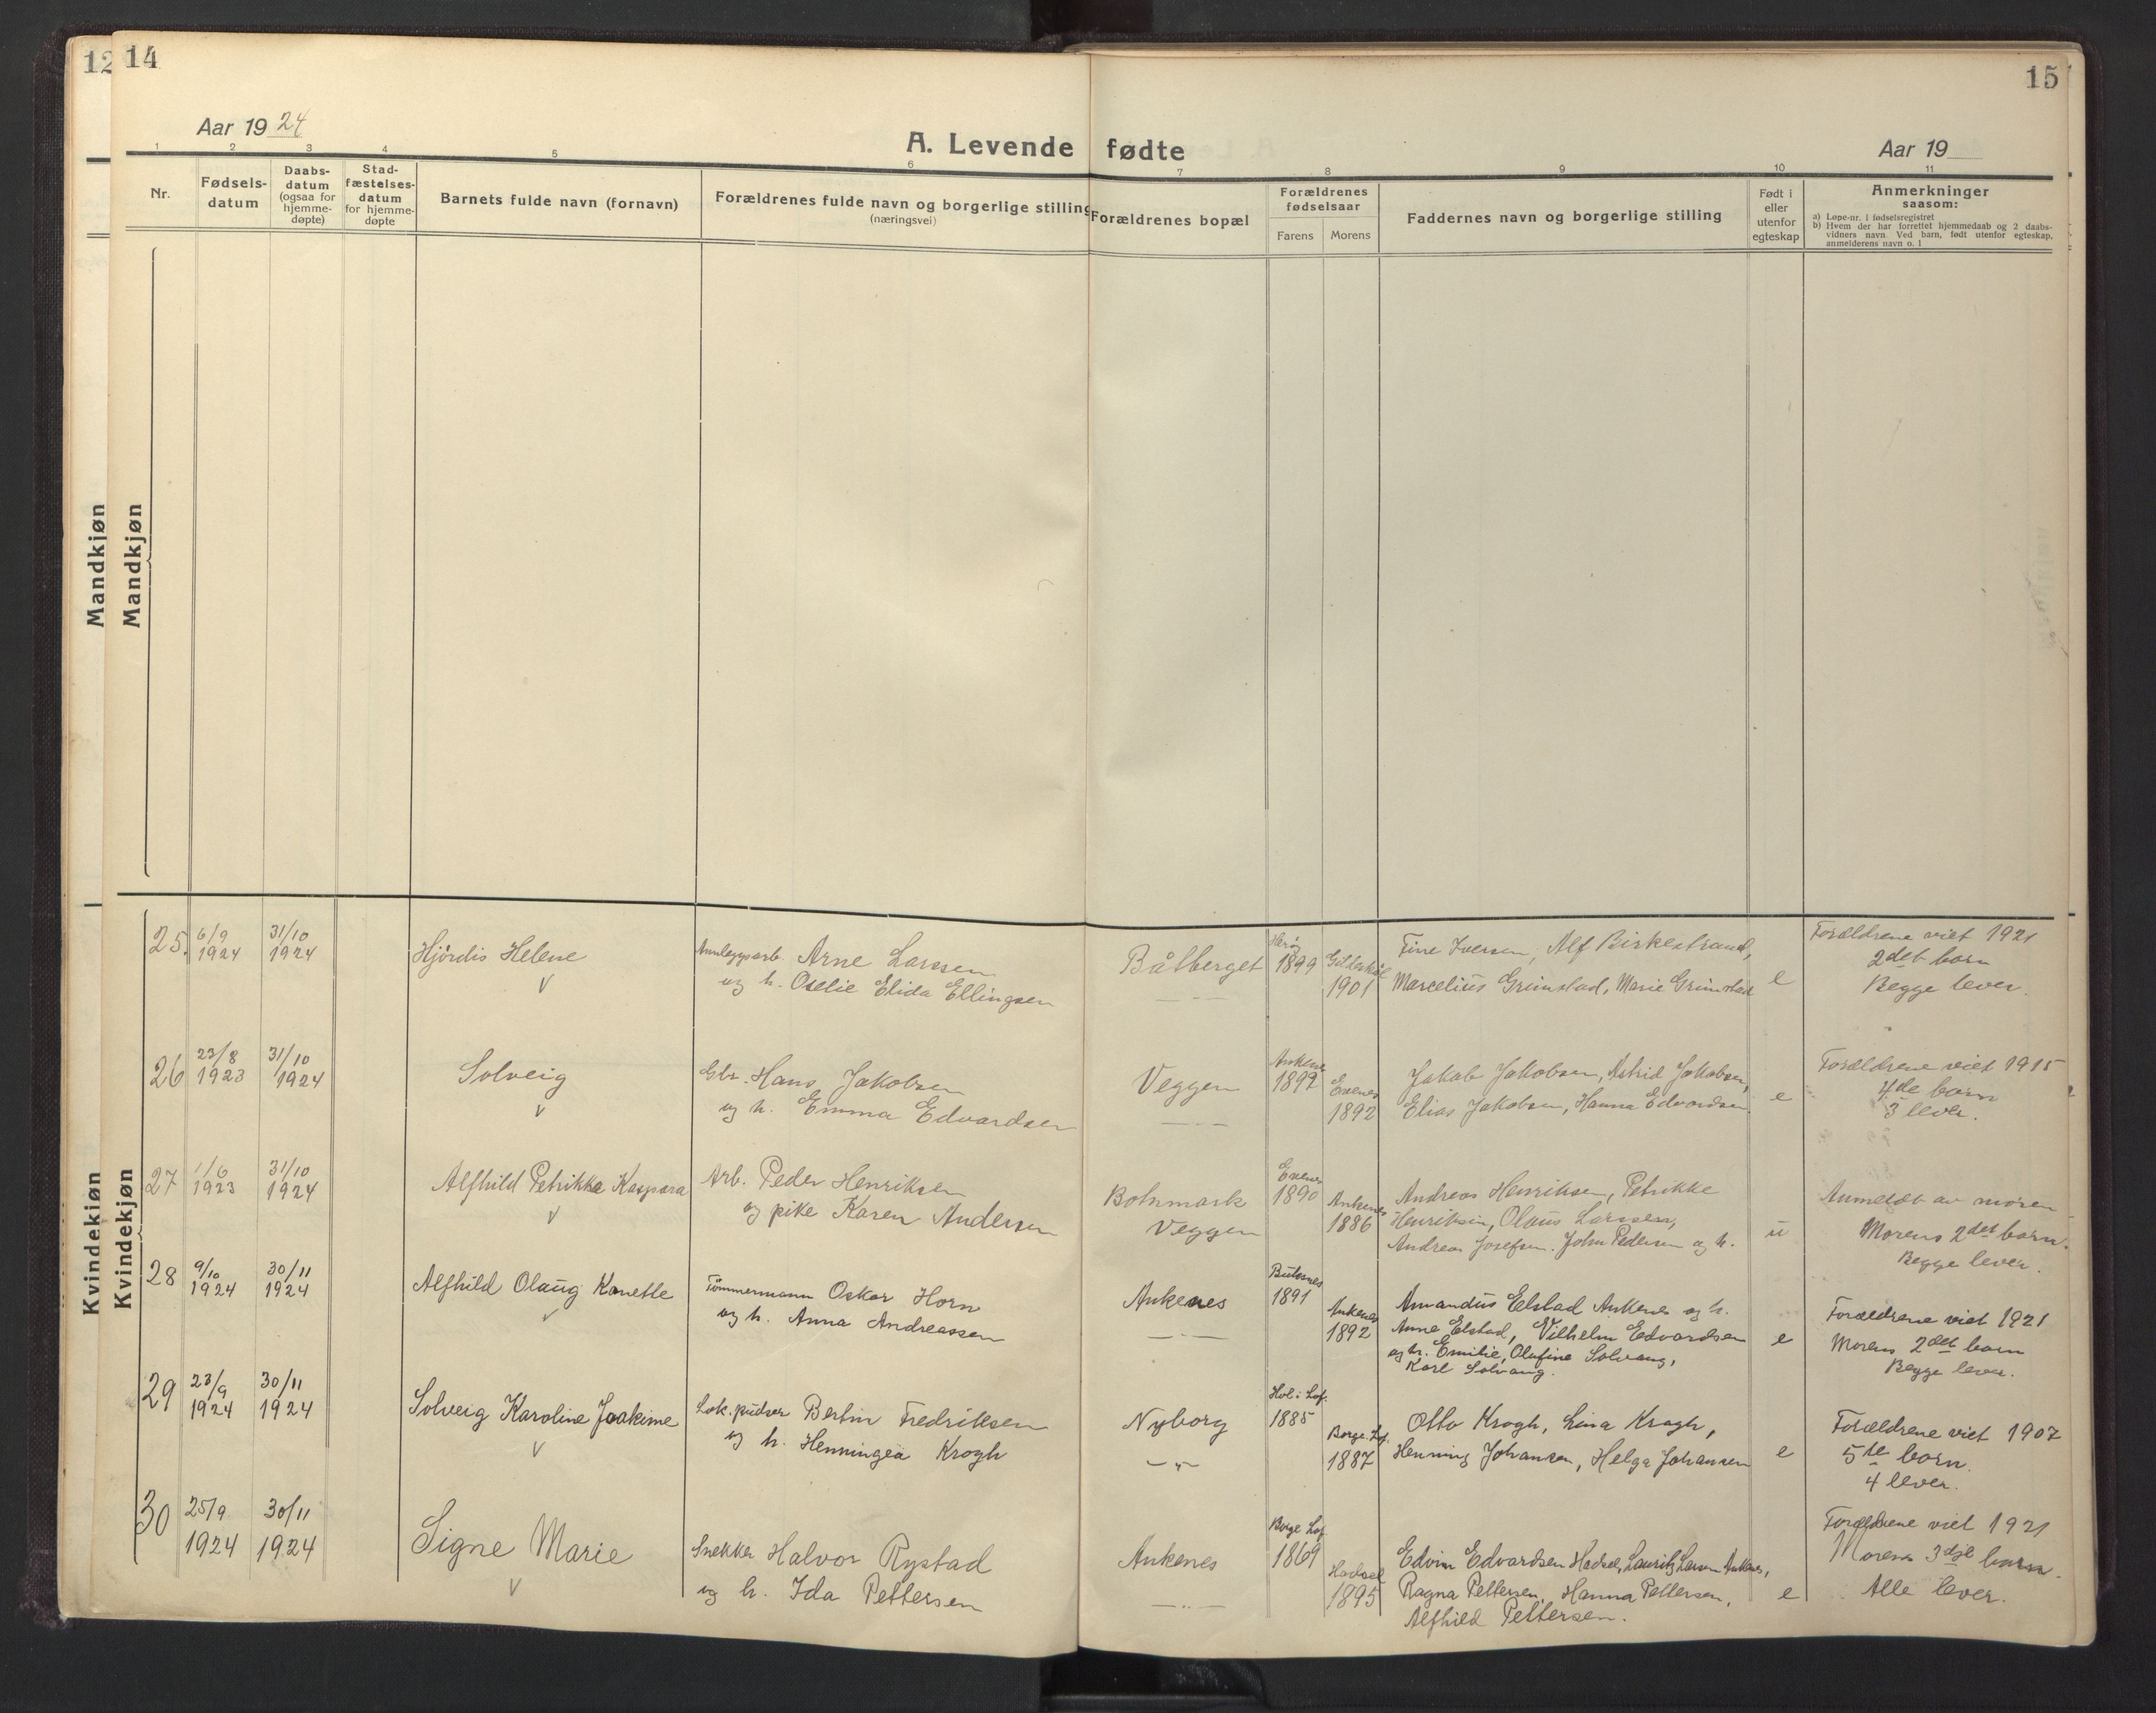 12 14
15
Aar 1924
A. Levende fødte
Aar 19
1 2 3 4 5 6 7 8 9 10 11
Nr.
Fødsels-
datum
Daabs-
datum
(ogsaa for
hjemme-
døpte)
Stad-
fæstelses-
datum
for hjemme-
døpte
Barnets fulde navn (fornavn)
Forældrenes fulde navn og borgerlige stilling
(næringsvei)
Forældrenes bopæl
Forældrenes
fødselsaar
Farens Morens
Faddernes navn og borgerlige stilling
Født i
eller
utenfor
egteskap
Anmerkninger
saasom:
a) Løpe-nr. i fødselsregistret
b) Hvem der har forrettet hjemmedaab og 2 daabs-
vidners navn. Ved barn, født utenfor egteskap,
anmelderens navn o. l
Mandkjøn
Mandkjøn
Kvindekjøn
Kvindekjøn
25. 6/9 1924 31/10 1924
Hjørdis Helene
Anleggsarb. Arne Larssen
og h. Oselie Elida Ellingsen
Båtberget
Herøy 1899
Gildeskål 1901
Tine Iversen, Alf Birkestrand,
Marcelius Grimstad, Marie Grimstad
e
Forældrene viet 1921
2det barn
Begge lever.
26 23/8 1923 31/10 1924
Solveig
Gbr. Hans Jakobsen
og h. Emma Edvardsen
Veggen
Ankenes 1892
Evenes 1892
Jakob Jakobsen, Astrid Jakobsen,
Elias Jakobsen, Hanna Edvardsen.
e
Forældrene viet 1915
4de barn
3 lever.
27 1/6 1923 31/10 1924
Alfhild Petrikke Kaspara
Arb. Peder Henriksen
og pike Karen Andersen
Botnmark
Veggen
Evenes 1890
Ankenes 1886
Andreas Henriksen, Petrikke
Henriksen, Olaus Larssen,
Andreas Josefsen. John Pedersen og h.
u
Anmeldt av moren
Morens 2det barn.
Begge lever.
28 9/10 1924 30/11 1924
Alfhild Olaug Kanette
Tömmermann Oskar Horn
og h. Anna Andreassen
Ankenes
1891
Ankenes 1892
Amandus Elstad Ankenes og h.
Anne Elstad, Vilhelm Edvardsen
og h. Emilie, Olufine Solvang,
Karl Solvang.
e
Forældrene viet 1921
Morens 2det barn
Begge lever.
29 23/9 1924 30/11 1924
Solveig Karoline Joakime
Lok. pudser Bertin Fredriksen
og h. Henningea Krogh
Nyborg
Hol i Lof. 1885
Borge. Lof. 1887
Otto Krogh, Lina Krogh,
Henning Johansen, Helga Johansen
e
Forældrene viet 1907
5te barn.
4 lever.
30 25/9 1924 30/11 1924
Signe Marie
Snekker Halvor Rystad
og h. Ida Pettersen
Ankenes
Borge Lof. 1869
Hadsel 1895
Edvin Edvardsen Hadsel, Lauritz Larsen Ankenes,
Ragna Pettersen, Hanna Pettersen,
Alfhild Pettersen.
e
Forældrene viet 1921
Morens 3dje barn.
Alle lever.